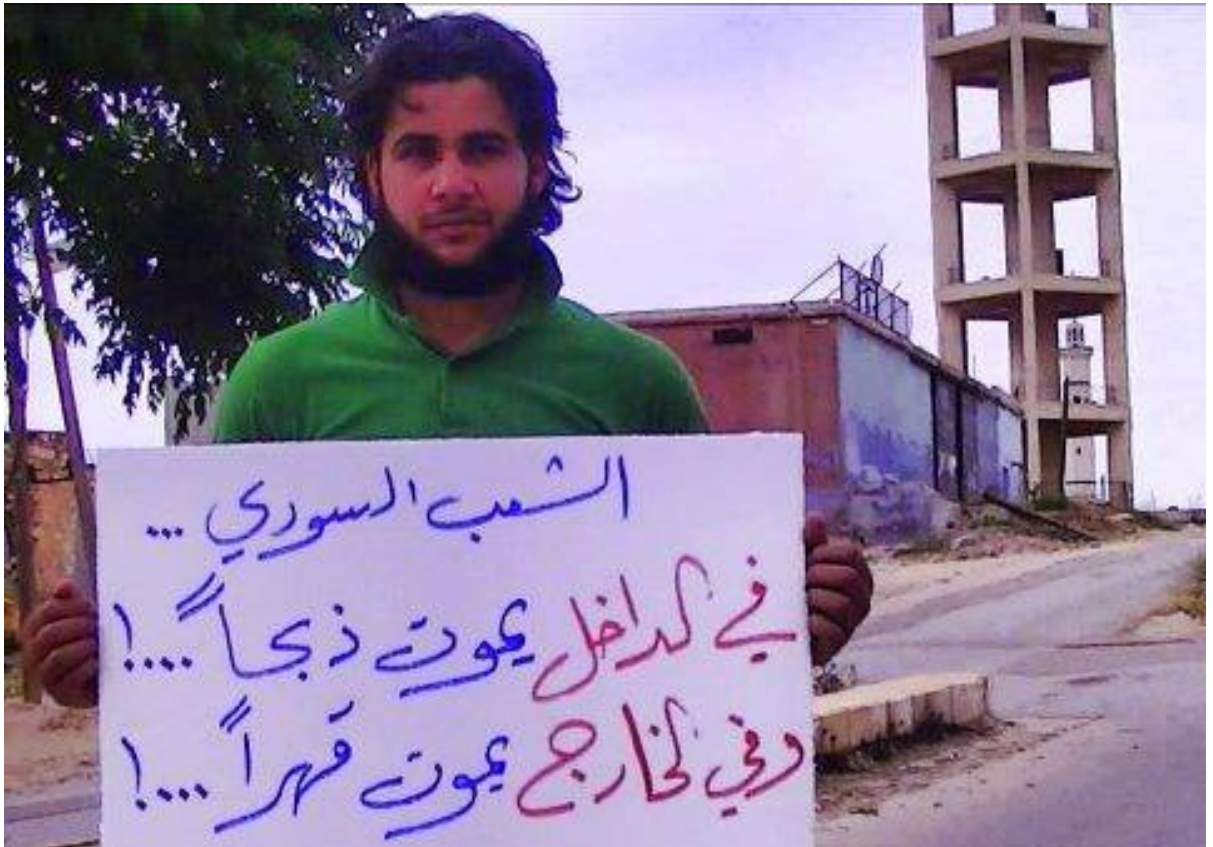 الشعب السوري ...
في الداخل يموت ذبحاً ....!
وفي الخارج يموت قهراً ....!